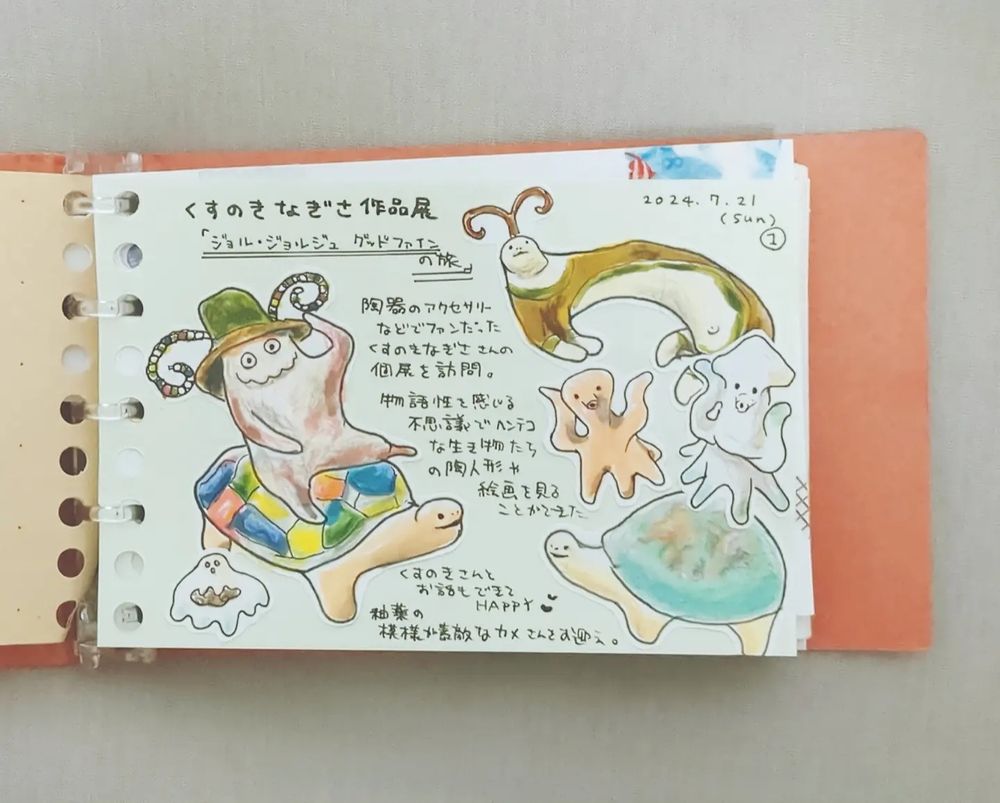 くすのきなぎさ作品展
「ジョル・ジョルジュ グッドファイン
の旅」
2024.7.21
(sun)
①
陶器のアクセサリー
などでファンだった
くすのきなぎささんの
個展を訪問。
物語性を感じる
不思議でヘンテコ
な生き物たち
の陶人形や
絵画を見る
ことができた
くすのきさんと
お話もできて
HAPPY
釉薬の
模様が素敵なカメさんをお迎え。